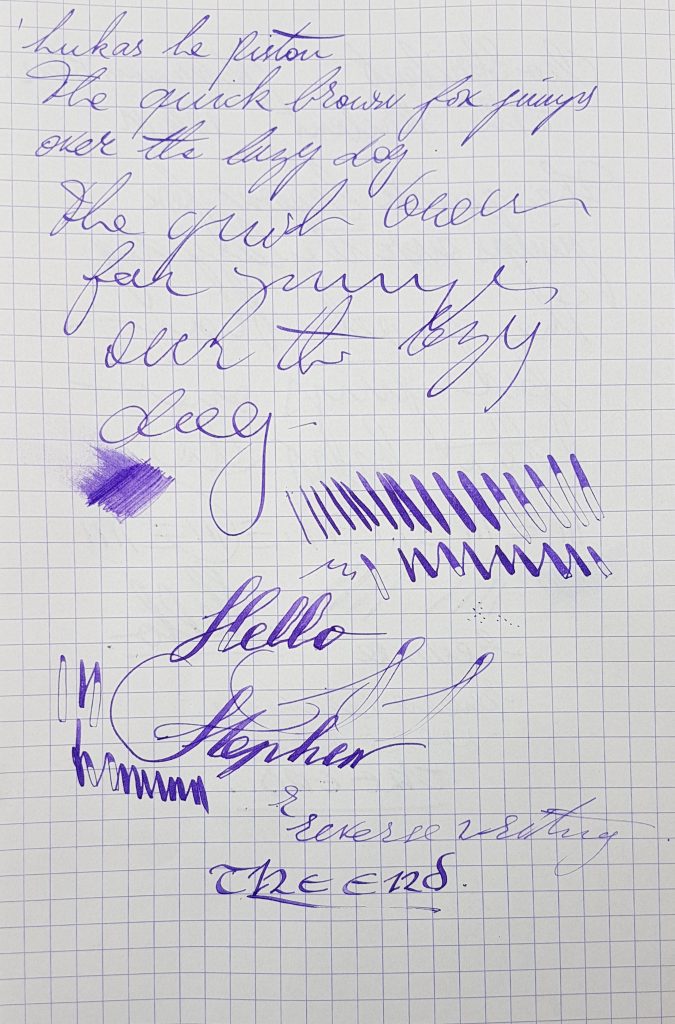 Lukas le piston
The quick brown fox jumps
over the lazy dog.
The quick brown
fox jumps
over the lazy
dog.
Hello
Stephen
reverse writing
THE END.